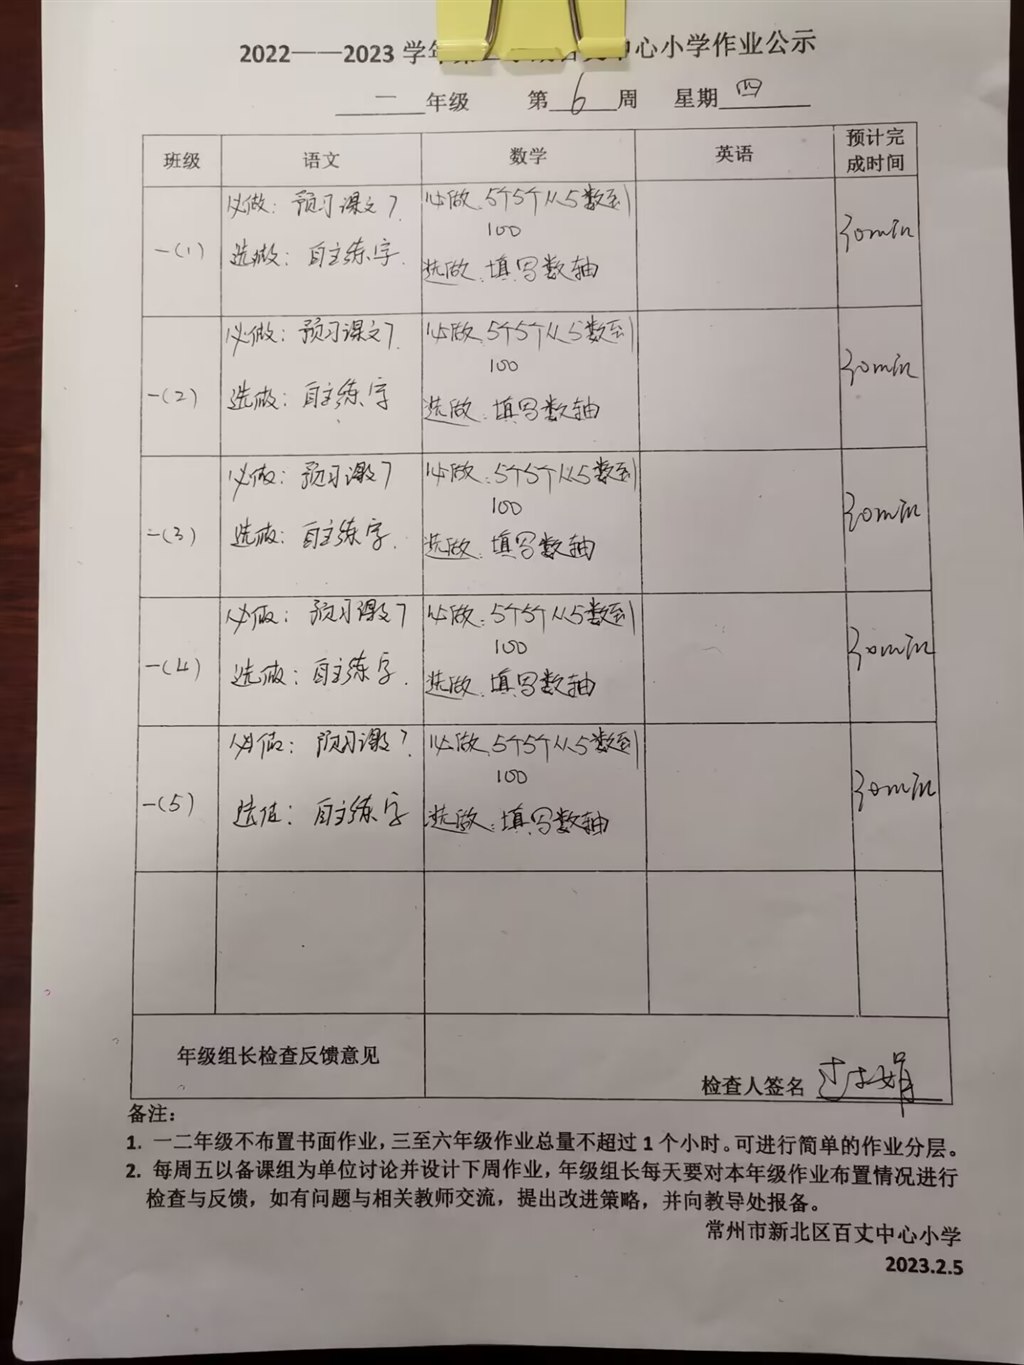 2022——2023 学年 中心小学作业公示
一 年级 第 6 周 星期 四
班级 语文 数学 英语 预计完成时间
一(1) 必做：预习课文7. 必做：5个5个从5数到100 30min
选做：自主练字. 选做：填写数轴
一(2) 必做：预习课文7. 必做：5个5个从5数到100 30min
选做：自主练字 选做：填写数轴
一(3) 必做：预习课文7 必做：5个5个从5数到100 30min
选做：自主练字. 选做：填写数轴
一(4) 必做：预习课文7 必做：5个5个从5数到100 30min
选做：自主练字. 选做：填写数轴
一(5) 必做：预习课文7. 必做：5个5个从5数到100 30min
选做：自主练字 选做：填写数轴
年级组长检查反馈意见 检查人签名
备注：
1. 一二年级不布置书面作业，三至六年级作业总量不超过 1 个小时。可进行简单的作业分层。
2. 每周五以备课组为单位讨论并设计下周作业，年级组长每天要对本年级作业布置情况进行
检查与反馈，如有问题与相关教师交流，提出改进策略，并向教导处报备。
常州市新北区百丈中心小学
2023.2.5